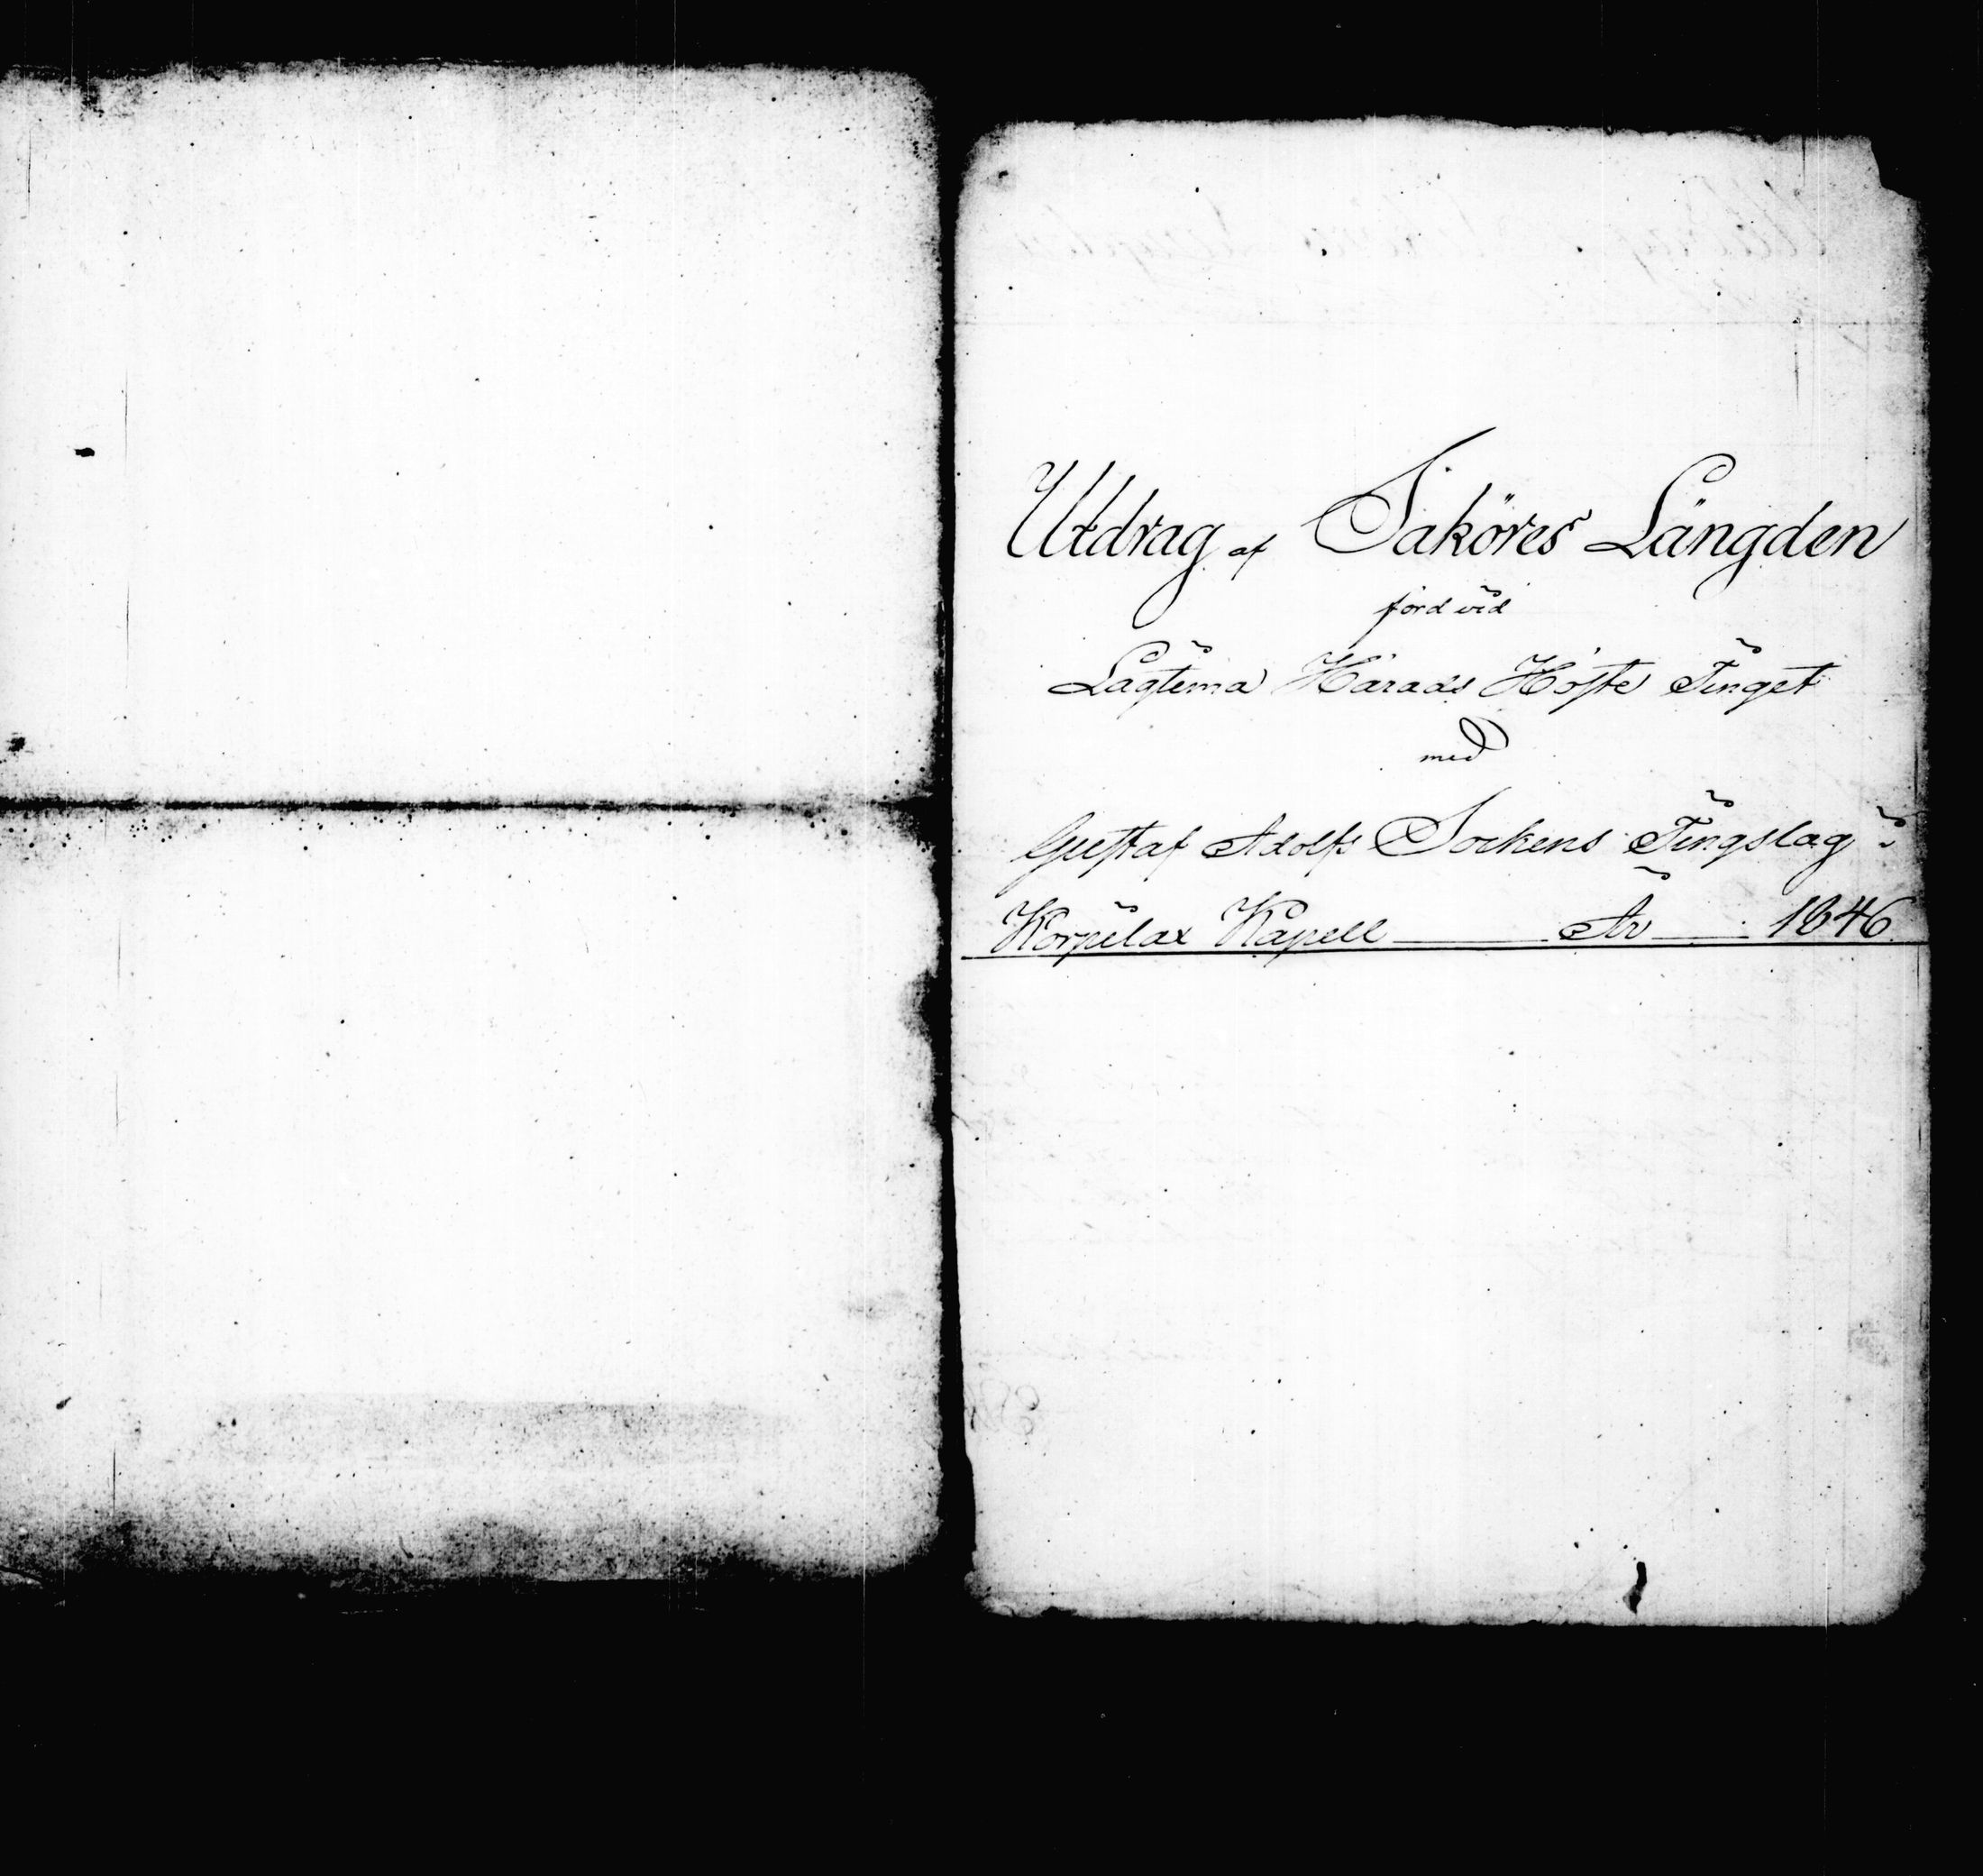 Utdrag af Saköres Längden
förd vid
Lagtima Härads Höste Tinget
med
Gustaf Adolfs Sockens Tingslag i
Korpilax Kapell ——— År —— 1846